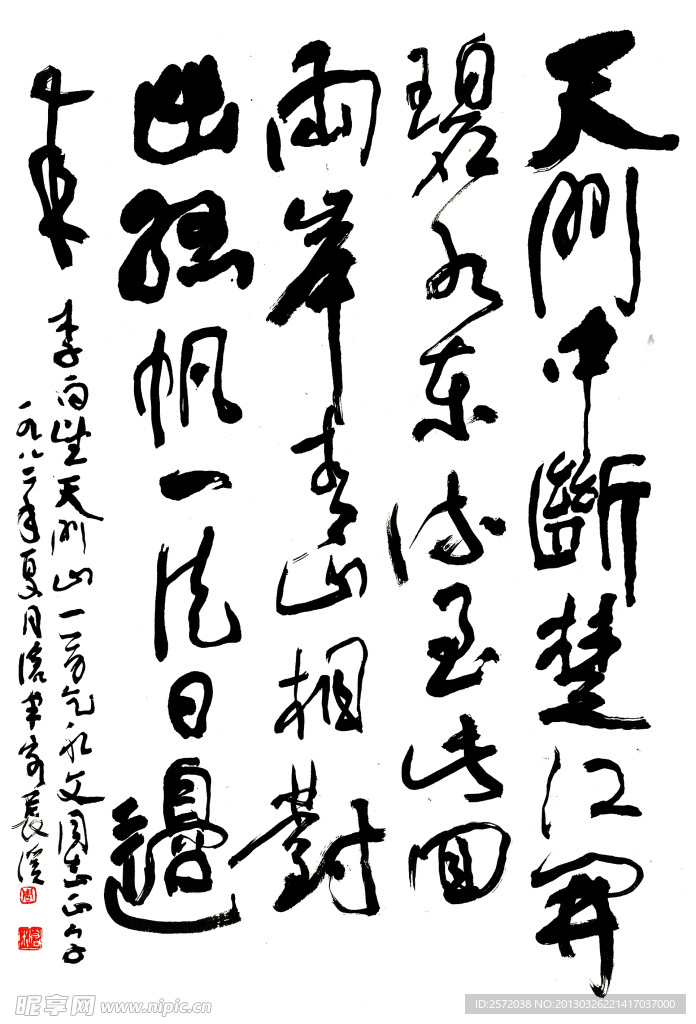 天門中斷楚江開
碧水東流至此回
兩岸青山相對
出孤帆一片日邊
來
李白望天門山一首乞永文同志正
一九八二年夏月
昵享网 www.nipic.cn
ID:2572038 NO:20130326221417037000